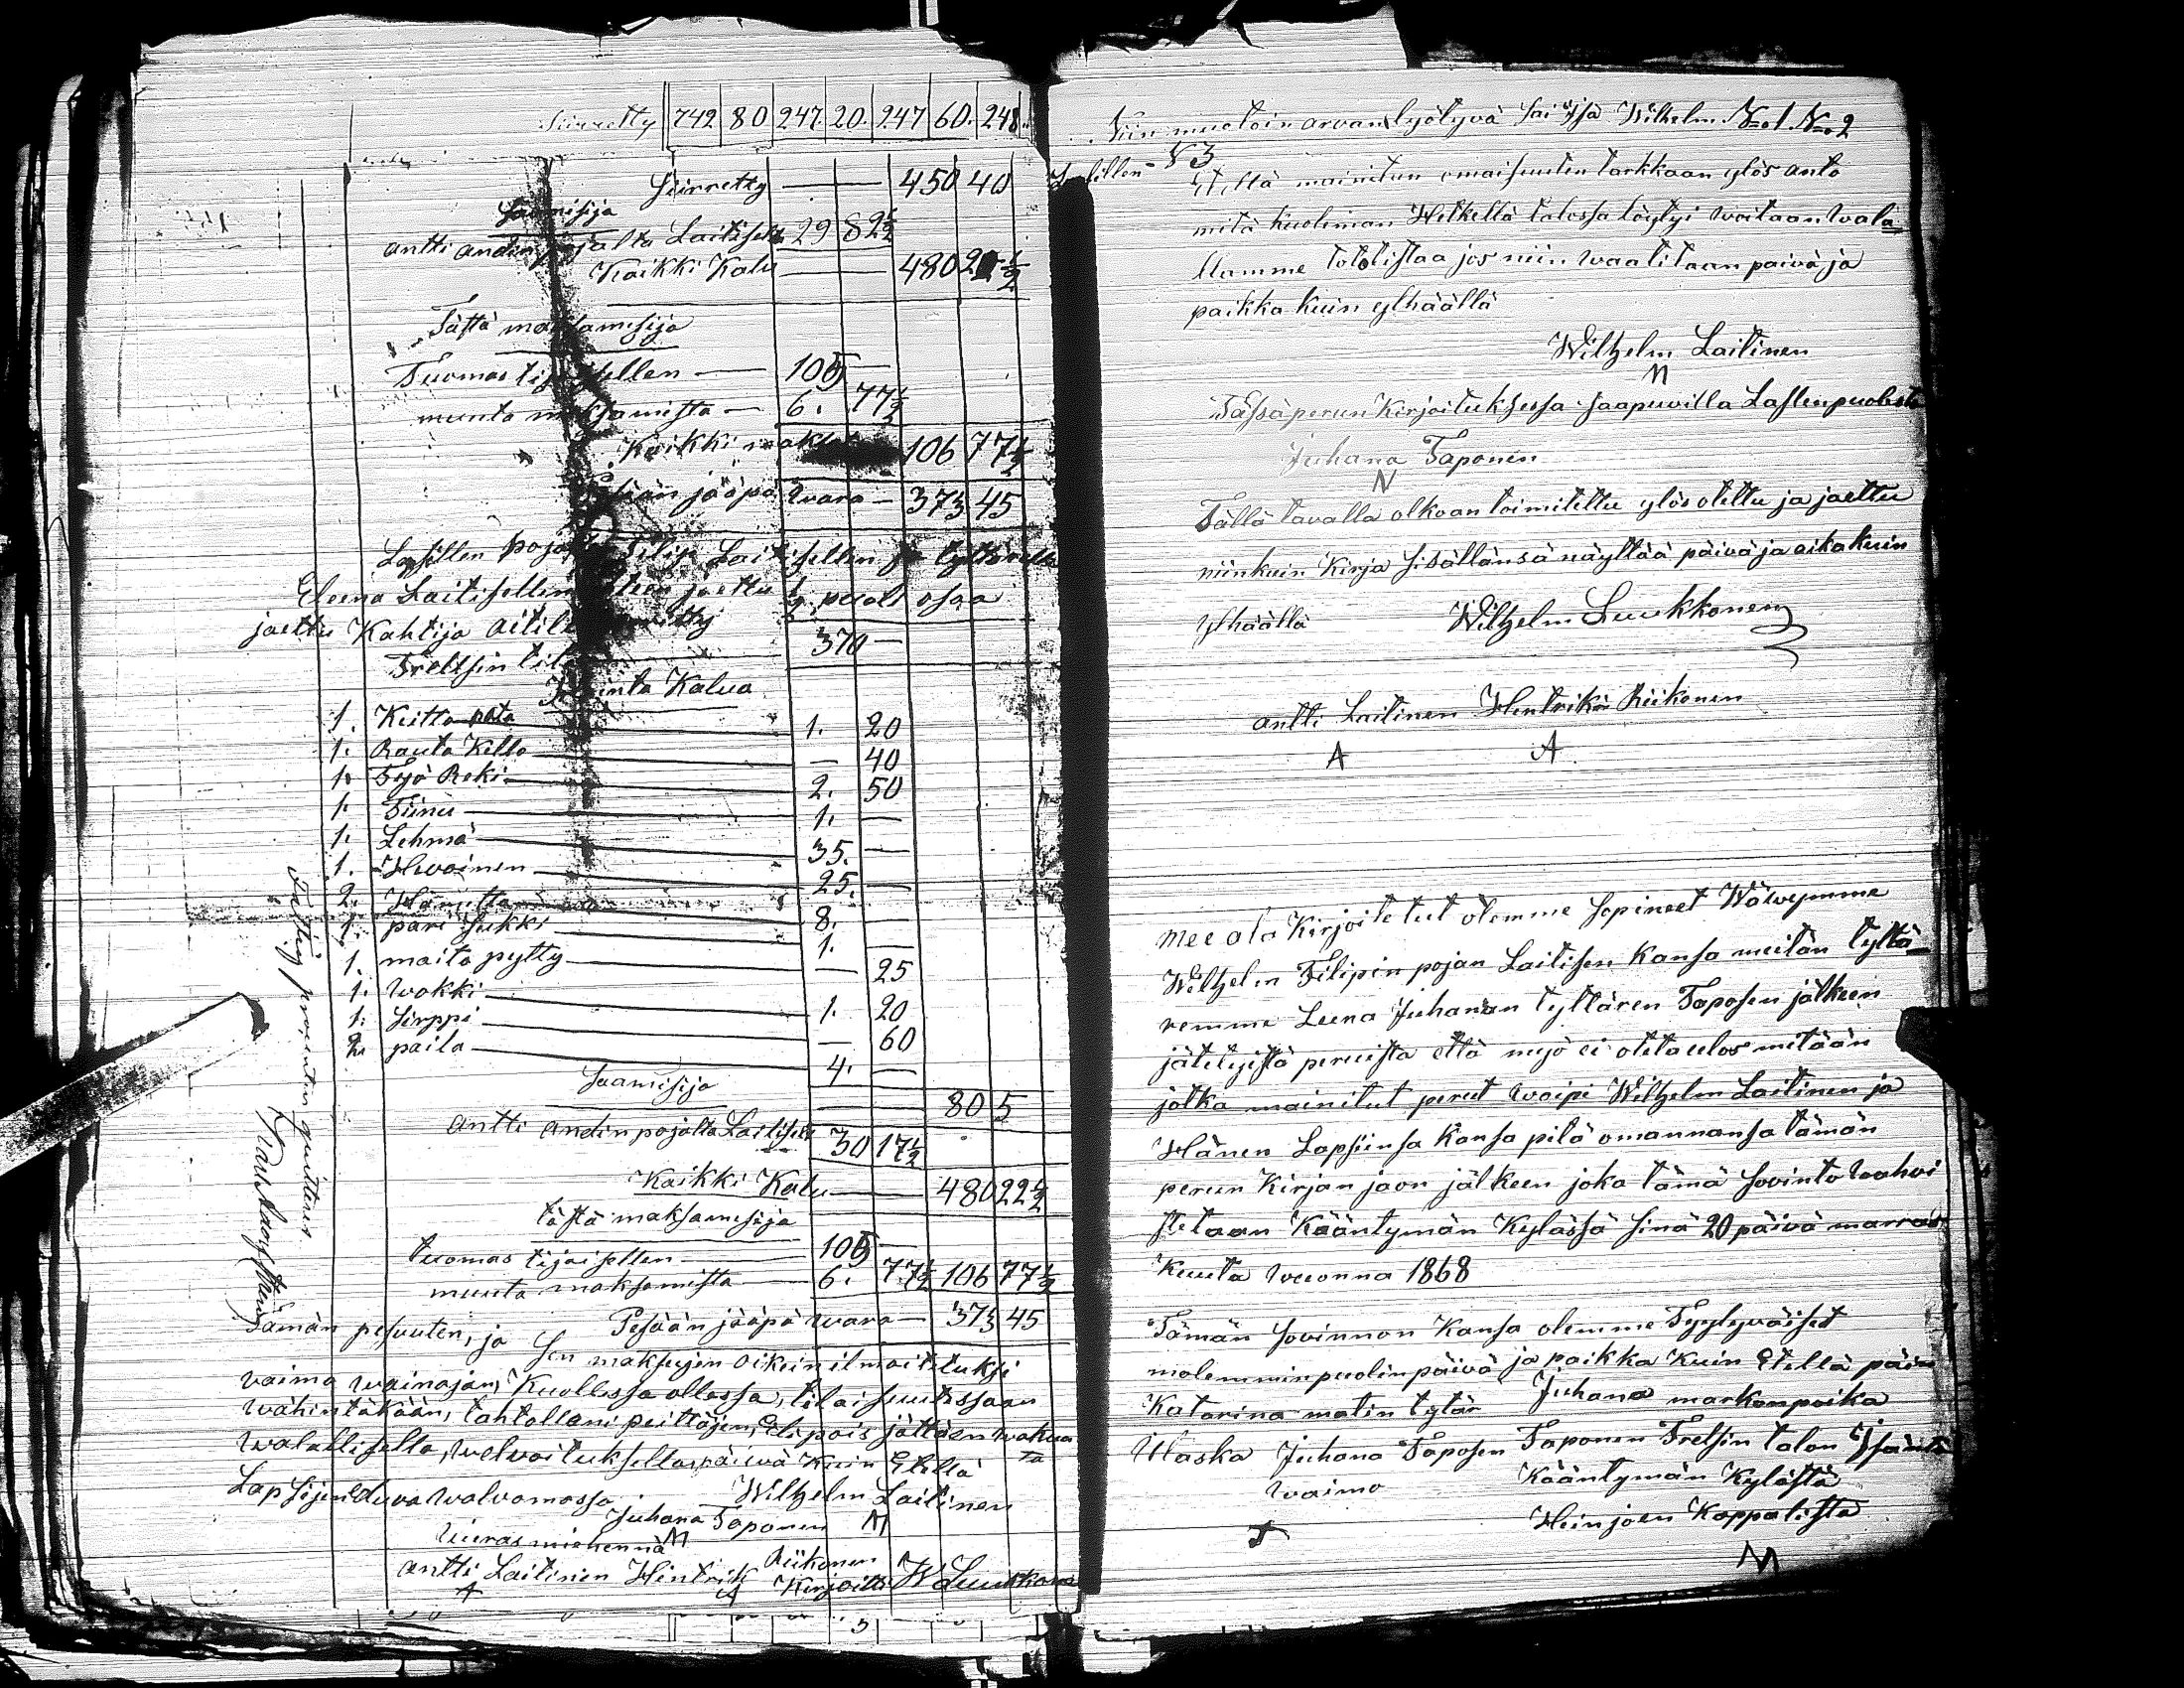 Siirretty 742 80 247. 20. 247 60. 248.
Siirretty — 450 40
Saamisija
Antti Andin pojalta Laitiselta 29 82½
Kaikki Kalu — 480 22½
Tästä maksamisija
Tuomas — 100 —
muuta maksamista — 6. 77½
Kaikki 106 77½
jääpä Wara — 373 45
Lapsillen Laitisellen ja tyttärelle
Eleena Laitisellen jaettu ½ puoli osaa
jaettu Kahtija
Treltsin 370 —
Kalua
1. Keitto pata — 1. 20
1. Rauta Kello — — 40
1. Työ Reki — 2. 50
1. Tiinu — 1. —
1. Lehmä — 35. —
1. Hevoinen — 25. —
2. 8. —
1. pari Sukki — 1. —
1. maito pytty — — 25
1. Wokki — 1. 20
1. Sirppi — — 60
2. paila — 4. —
Saamisija — 80 5
Antti Andin pojalta Laitiselta 30 17½
Kaikki Kalu — 480 22½
tästä maksamisija
tuomas tijaisellen — 100 —
muuta maksamista — 6. 77½ 106 77½
Pesään jääpä wara — 373 45
Tämän pesuuten, ja sen maksujen oikein ilmoitetuksi
vaimo wainajan, Kuollessa ollessa, tilaisuutessaan
wähintäkään, tahtollani peittäjen, Eli pois jättäen wakuuta
walallisella, welvoituksella, päiwä Kuin Etellä
Lapsijen Eduva walvomassa Wilhelm Laitinen
Juhana Taponen
Vieras miehennä
Antti Laitinen Hintrik Riikonen
Kirjoitti W Luukkonen
Niin muotoin arvan lyötyvä sai Isä Wilhelm No. 1. No. 2
Lapsillen - N 3
Etellä mainitun omaisuuten tarkkaan ylös anto
mitä Kuoleman Hetkellä talossa löytyi woitaan wala
llamme totistaa jos niin waatitaan paivä ja
paikka Kuin ylhäällä
Wilhelm Laitinen
Tässä perun Kirjoituksessa saapuvilla Lasten puolesta
Juhana Taponen
N
Tällä tavalla olkoon toimitettu ylös otettu ja jaettu
niinkuin Kirja sisällänsä näyttää päivä ja aika kuin
Ylhäällä Wilhelm Luukkonen
Antti Laitinen Hentrik Riikonen
A A
Mee ala Kirjoitetut olemme sopineet Wäwymme
Wilhelm Filipin pojan Laitisen Kansa meitän tyttä-
remme Leena Juhanan tyttären Taposen jälkeen
jätetyistä peruista että myö ei oteta ulos mitään
jotka mainitut perut woipi Wilhelm Laitinen ja
Hänen Lapsiinsa Kansa pitä omannansa tämän
perun Kirjan jaon jälkeen joka tämä sovinto wahvi
stetaan Kääntymän Kylässä sinä 20 päivä marras
Kuuta wuonna 1868
Tämän sovinnon Kansa olemme Tyytyväiset
molemmin puolin päivä ja paikka Kuin Etellä päin
Katarina matin tytär Juhana markunpoika
Ulaska Juhana Taposen Taponen Treltsin talon Isäntä
waimo Kääntymän Kylästä
Heinjoen Kappalista